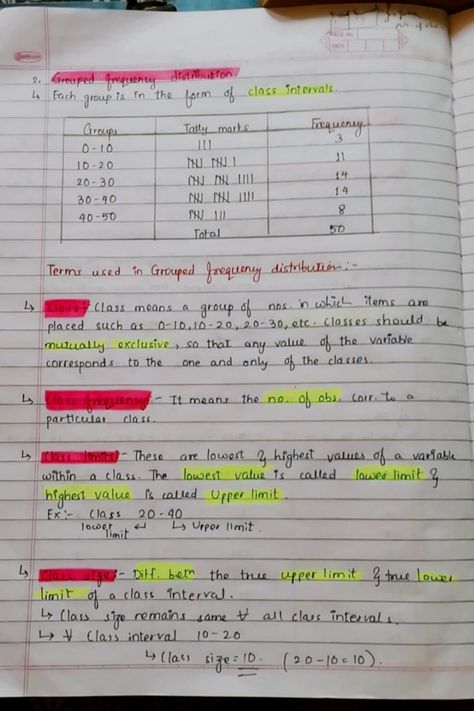 PAGE NO.
DATE
2. Grouped frequency distribution
↳ Each group is in the form of class intervals.
Groups Tally marks Frequency
0-10 ||| 3
10-20 NU NU | 11
20-30 NU NU |||| 14
30-40 NU NU |||| 14
40-50 NU ||| 8
Total 50
Terms used in Grouped frequency distribution:-
↳ Class:- Class means a group of nos. in which items are
placed such as 0-10, 10-20, 20-30, etc. Classes should be
mutually exclusive, so that any value of the variable
corresponds to the one and only of the classes.
↳ Class frequency:- It means the no. of obs. corr. to a
particular class.
↳ Class limits:- These are lowest & highest values of a variable
within a class. The lowest value is called lower limit &
highest value is called Upper limit.
Ex:- Class 20-40
lower limit ↵ ↳ Upper limit.
↳ Class size:- Diff. betn the true upper limit & true lower
limit of a class interval.
↳ Class size remains same ∀ all class intervals.
↳ → ∀ Class interval 10-20
↳ Class size = 10. (20-10=10).